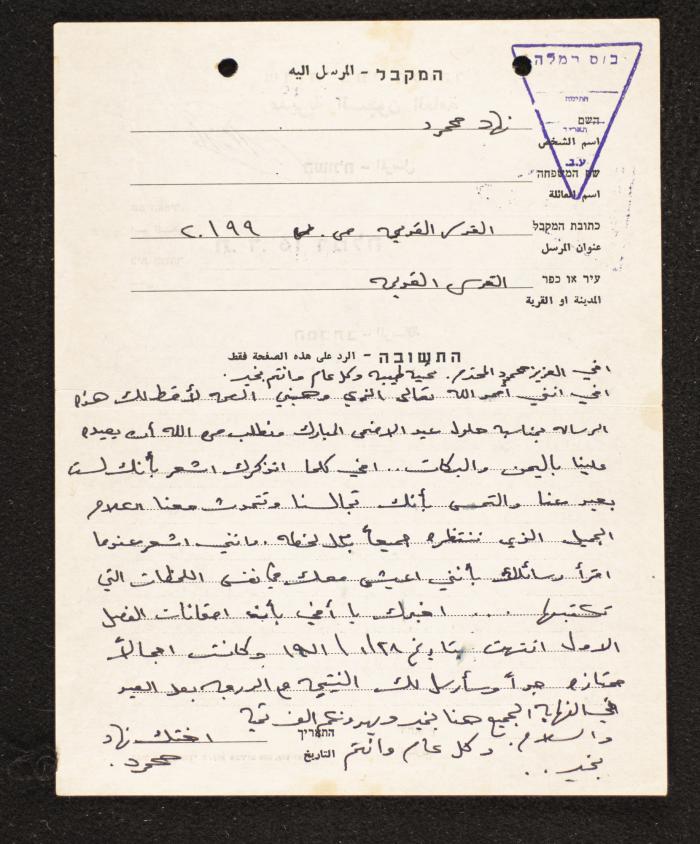 המקבל - المرسل اليه
בוס רמלה
חתימה
תאריך
ע.ב.
השם
اسم الشخص
نهاد محمود
שם המשפחה
اسم العائلة
כתובת המקבל
عنوان المرسل
القدس القديمة ص. ب ٢٠١٩٩
עיר או כפר
المدينة او القرية
القدس القديمة
התשובה - الرد على هذه الصفحة فقط
اخي العزيز محمود المحترم. تحية طيبه وكل عام وانتم بخير.
اخي انني أحمد الله تعالى الذي وهبني الصحه لأخط لك هذه
الرساله بمناسبة حلول عيد الاضحى المبارك ونطلب من الله أن يعيده
علينا باليمن والبركات.. اخي كلما اتذكرك اشعر بأنك لست
بعيد عنا والتمس بأنك تجالسنا وتتحدث معنا الكلام
الجميل الذي ننتظره جميعاً بكل لحظه. وانني اشعر عندما
اقرأ رسائلك بأنني اعيش معك في نفس اللحظات التي
تكتبها .... اخبرك يا أخي بأن امتحانات الفصل
الاول انتهت بتاريخ ٢٨/١/١٩٨١ وكانت اجمالاً
ممتازه جداً وسأرسل لك النتيجه مع الدرجه بعد العيد
في النهاية الجميع هنا بخير ويهدونكم الف تحية
والسلام. وكل عام وانتم
بخير..
התאריך
التاريخ
اختك نهاد
محمود.